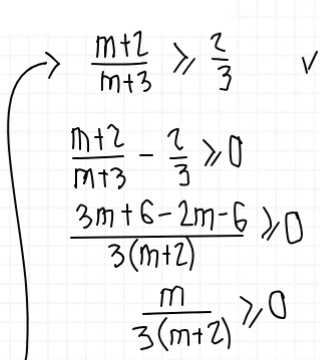 → (m+2)/(m+3) ⩾ 2/3 ✓
(m+2)/(m+3) - 2/3 ⩾ 0
(3m+6-2m-6)/(3(m+2)) ⩾ 0
m/(3(m+2)) ⩾ 0